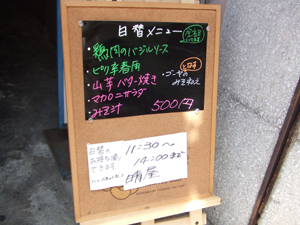 日替メニュー
・鶏肉のバジルソース
・ピリ辛春雨
・山芋バター焼き
・ゴーヤの
みそ和え
・マカロニサラダ
・みそ汁
500円
日替の
お持ち帰り
できます
11:30〜
14:00まで
晴屋